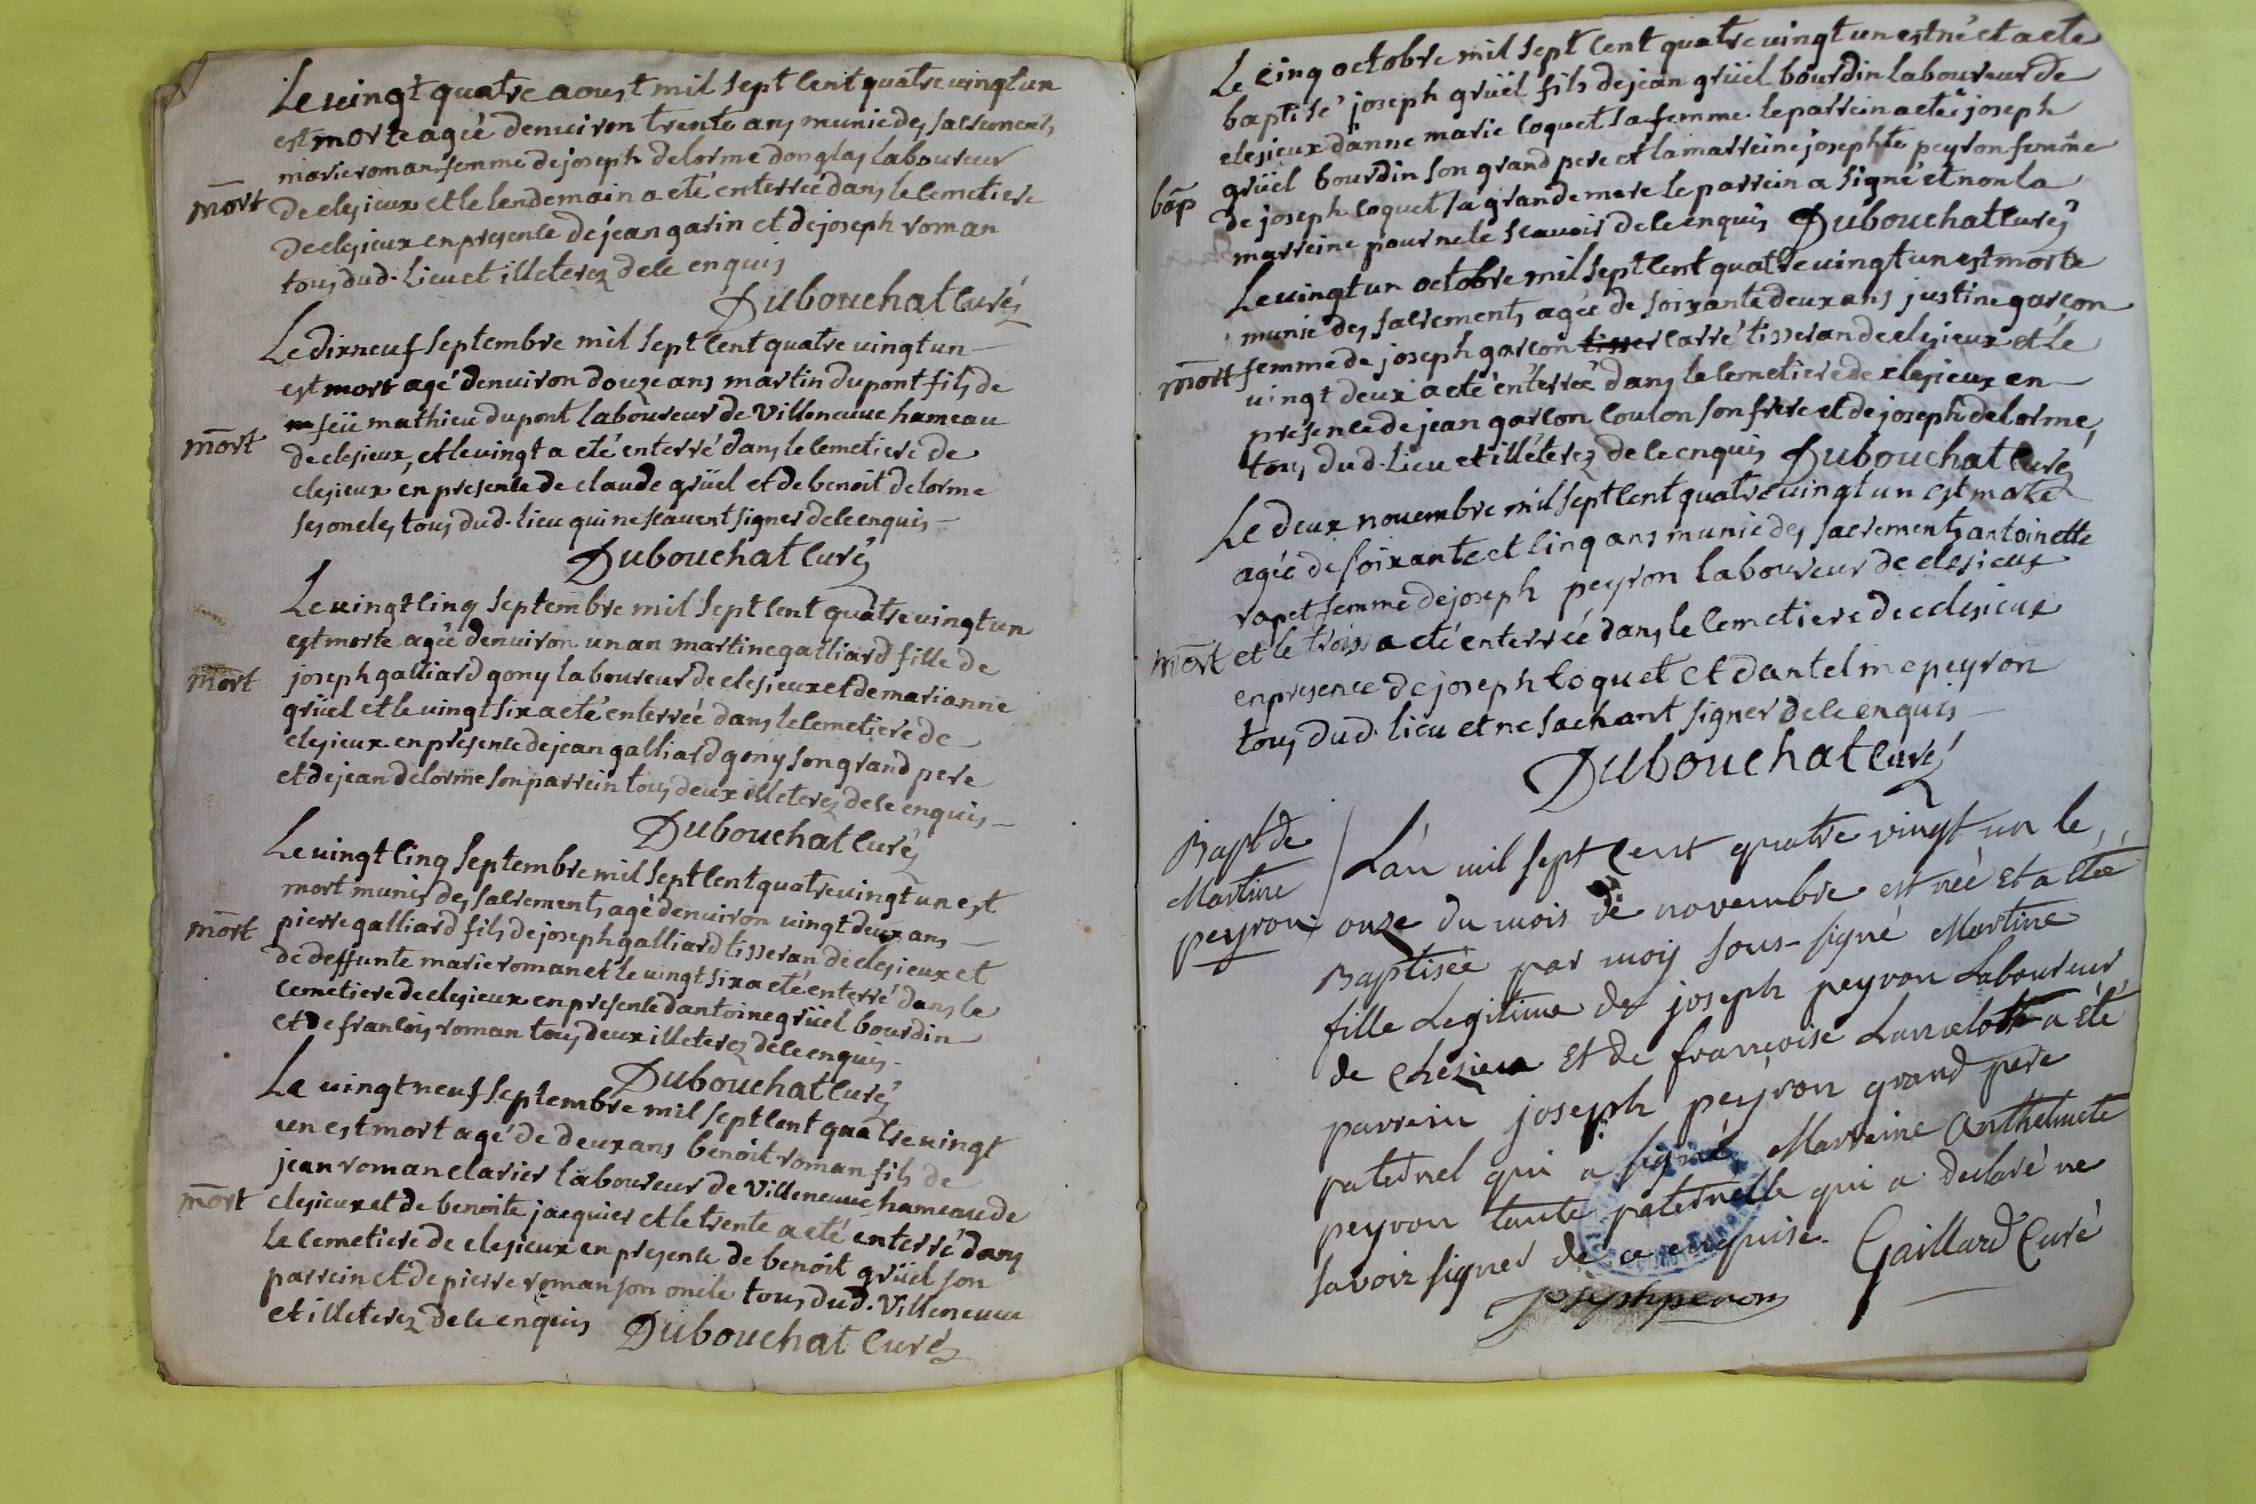 Le vingt quatre aoust mil sept cent quatre vingt un
est morte agée denviron trente ans munie des sacremens,
marie roman femme de joseph delorme donglas laboureur
mort
de clesieux et le lendemain a eté enterreé dans le cemetiere
de clesieux en presence de jean garin et de joseph roman
tous dud. Lieu et illeterez de ce enquis
Dubouchat curé
Le dixneuf septembre mil sept cent quatre vingt un
est mort agé denviron douze ans martin dupont fils de
feü mathieu dupont laboureur de Villeneuve hameau
mort
de clesieux, et le vingt a eté enterré dans le cemetiere de
clesieux en presence de claude grüel et de benoit delorme
ses oncles tous dud. lieu qui ne scavent signer de ce enquis
Dubouchat curé
Le vingt cinq septembre mil sept cent quatre vingt un
est morte agée denviron un an martine galliard fille de
joseph galliard gony laboureur de clesieux et de marianne
mort
grüel et le vingt six a eté enterreé dans le cemetiere de
clesieux en presence de jean galliard gony son grand pere
et de jean delorme son parrein tous deux illeterez de ce enquis
Dubouchat curé
Le vingt cinq septembre mil sept cent quatre vingt un est
mort munis des sacrements agé denviron vingt deux ans
pierre galliard fils de joseph galliard tisseran de clesieux et
mort
de deffunte marie roman et le vingt six a eté enterré dans le
cemetiere de clesieux en presence dantoine grüel bourdin
et de francois roman tous deux illeterez de ce enquis
Dubouchat curé
Le vingt neuf septembre mil sept cent quatre vingt
un est mort agé de deux ans benoit roman fils de
jean roman clarier laboureur de Villeneuve hameau de
mort
clesieux et de benoite jacquier et le trente a eté enterré dans
le cemetiere de clesieux en presence de benoit grüel son
parrein et de pierre roman son oncle tous dud. Villeneuve
et illeterez de ce enquis Dubouchat curé
Le cinq octobre mil sept cent quatre vingt un est né et a ete
baptisé joseph grüel fils de jean grüel bourdin laboureur de
clesieux danne marie coquet sa femme. le parrein a eté joseph
grüel bourdin son grand pere et la marreine josephte peyron femme
bap
de joseph coquet sa grande mere le parrein a signé et non la
marreine pour ne le scavoir de ce enquis Dubouchat curé
Le vingt un octobre mil sept cent quatre vingt un est morte
munie des sacrements agée de soixante deux ans justine garcon
mort
femme de joseph garcon tisser carré tisseran de clesieux et le
vingt deux a eté enterreé dans le cemetiere de clesieux en
presence de jean garcon coulon son frere et de joseph delorme,
tous dud. Lieu et illéterez de ce enquis Dubouchat curé
Le deux novembre mil sept cent quatre vingt un est morte
agée de soixante et cinq ans munie des sacrements antoinette
rapet femme de joseph peyron laboureur de clesieux
mort
et le trois a eté enterreé dans le cemetiere de clesieux
en presence de joseph coquet et dantelme peyron
tous dud. lieu et ne sachant signer de ce enquis
Dubouchat curé
Bapt de
Martine
peyron
L'an mil sept cent quatre vingt un le,
onze du mois de novembre est née et a etée
Baptisée par moy sous-signé Martine
fille Legitime de joseph peyron Laboureur
de Clesieu et de francoise Lancelott a été
parrein joseph peyron grand pere
paternel qui a signé Marreine Anthelmete
peyron tante paternelle qui a declaré ne
savoir signer de ce enquise. Gaillard Curé
joseph peron